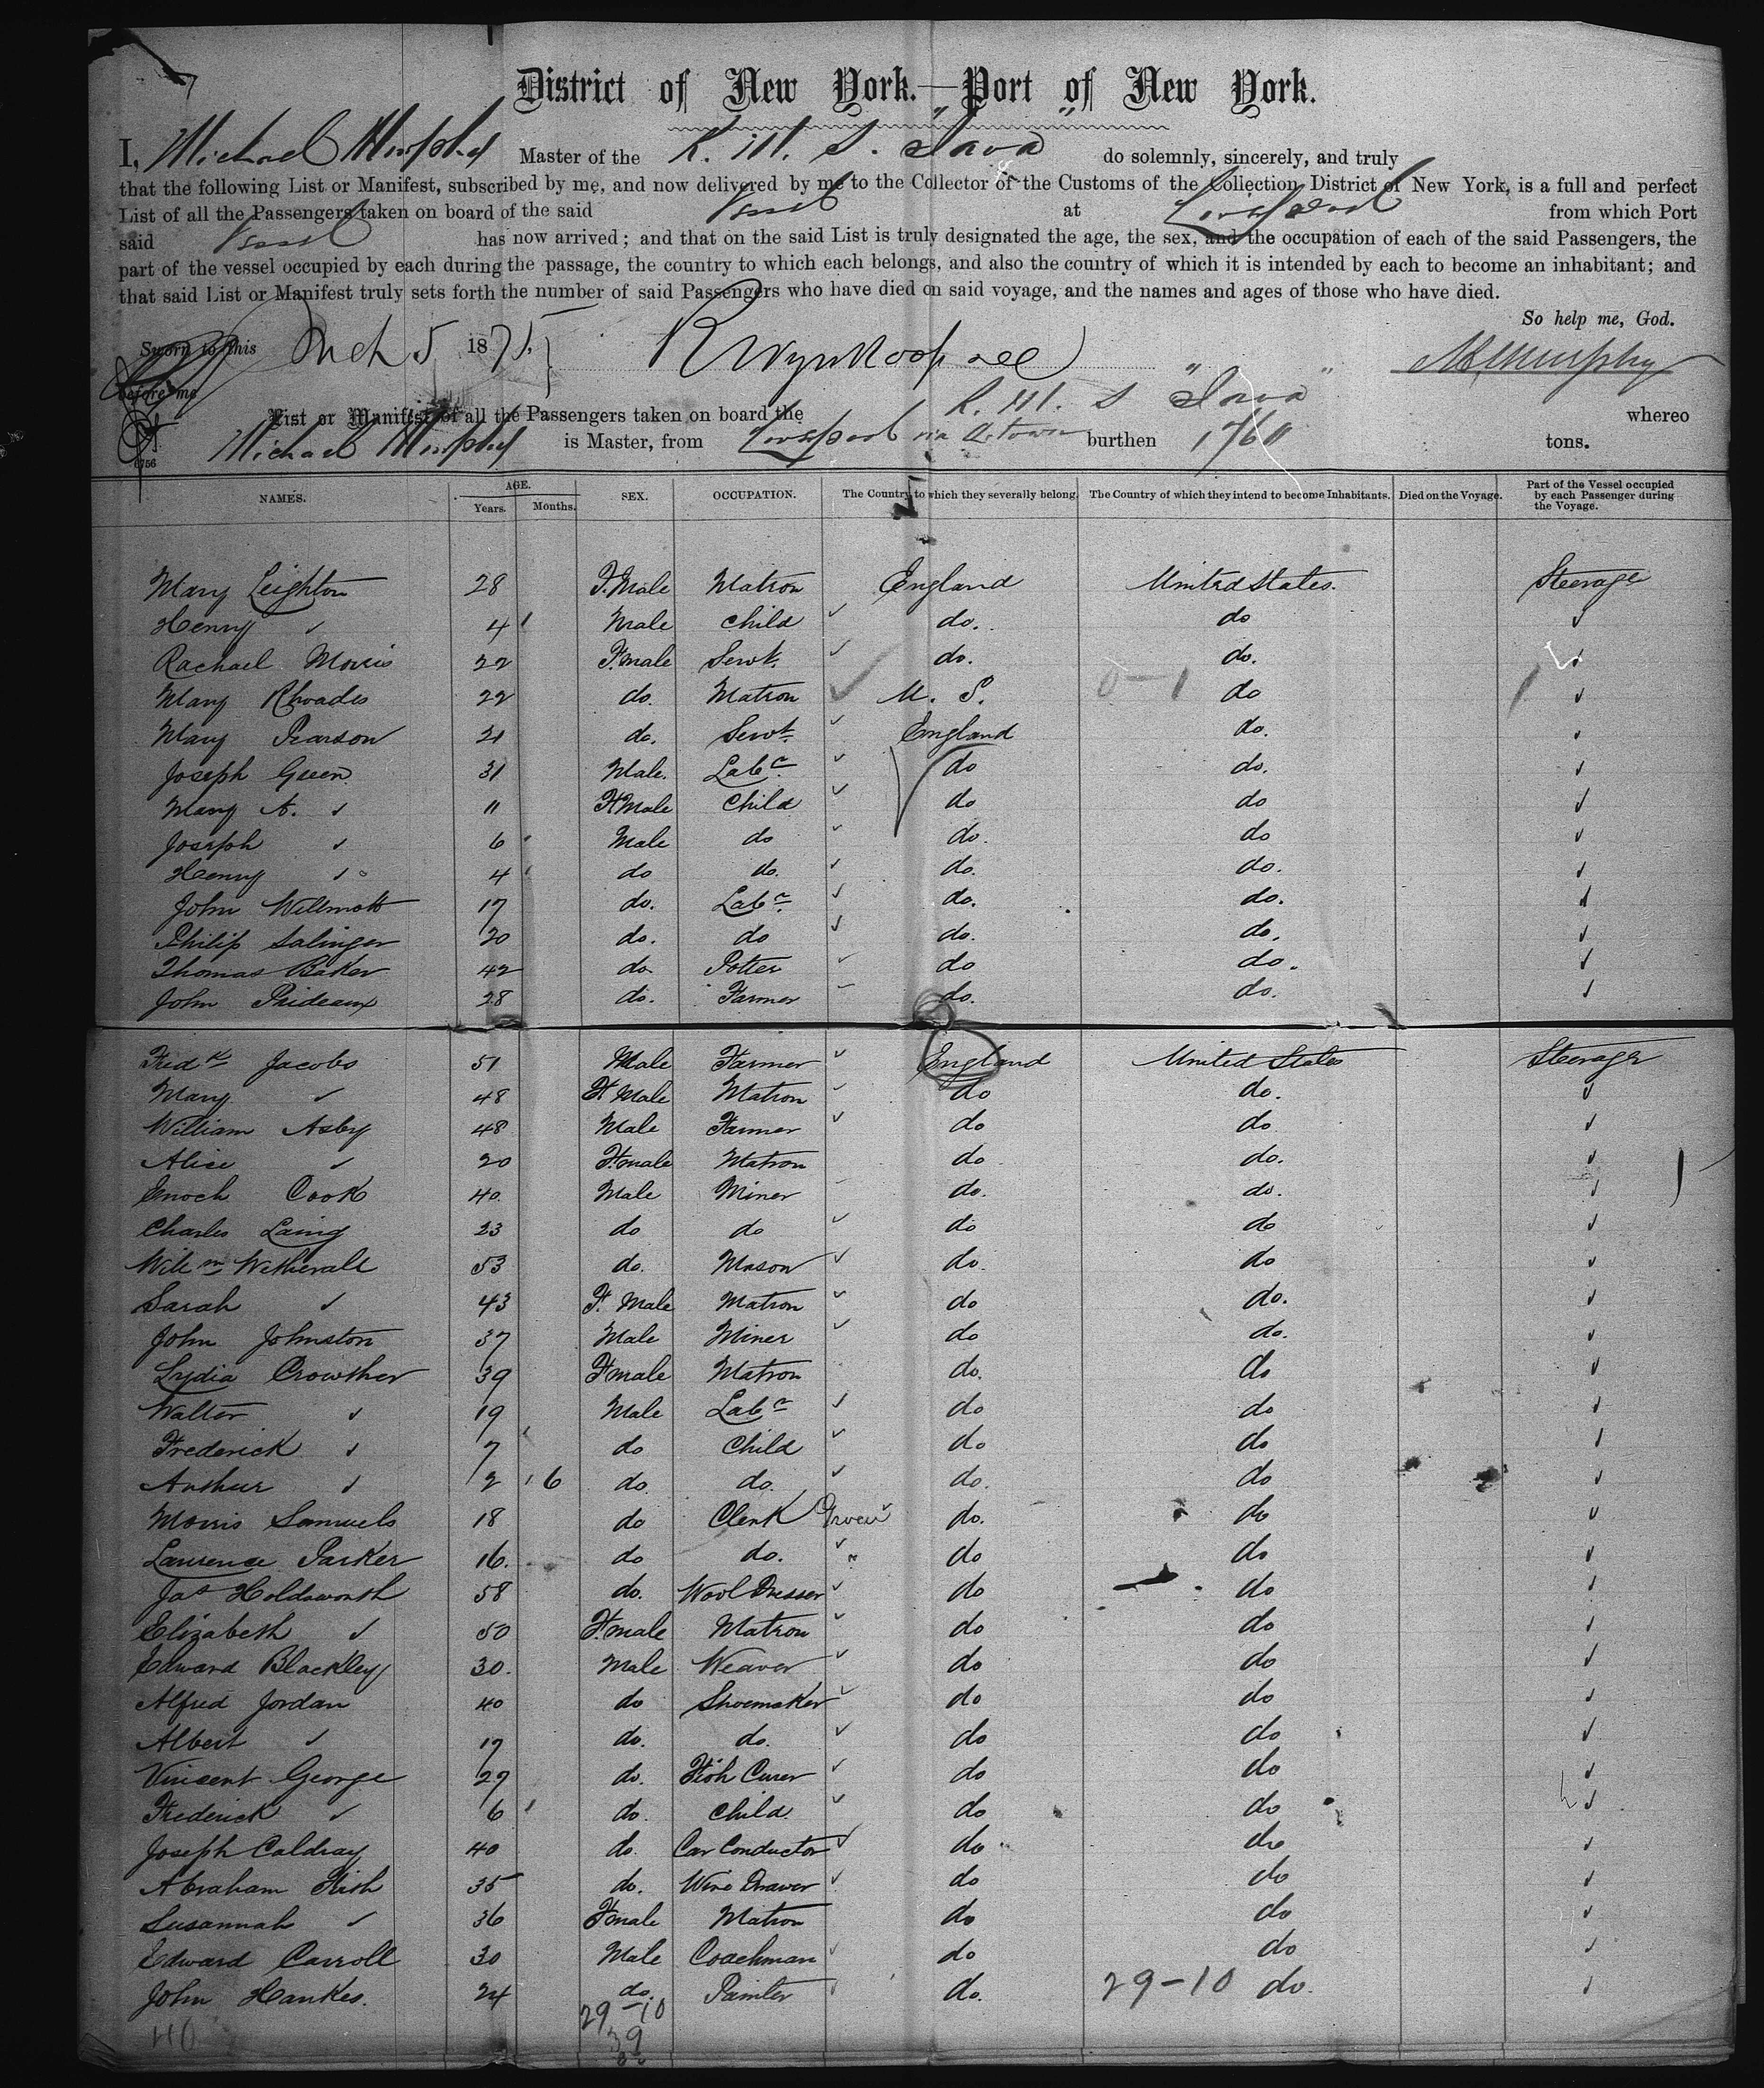 District of New York.—Port of New York.
I, Michael Murphy Master of the R. M. S. "Java" do solemnly, sincerely, and truly
that the following List or Manifest, subscribed by me, and now delivered by me to the Collector of the Customs of the Collection District of New York, is a full and perfect
List of all the Passengers taken on board of the said Vessel at Liverpool from which Port
said Vessel has now arrived; and that on the said List is truly designated the age, the sex, and the occupation of each of the said Passengers, the
part of the vessel occupied by each during the passage, the country to which each belongs, and also the country of which it is intended by each to become an inhabitant; and
that said List or Manifest truly sets forth the number of said Passengers who have died on said voyage, and the names and ages of those who have died.
So help me, God.
Sworn to this Mch 5 1875. R Wynkoop M Murphy
before me
List or Manifest of all the Passengers taken on board the R. M. S "Java" whereo
Michael Murphy is Master, from Liverpool via Q. Town burthen 1760 tons.
6756
NAMES. AGE. Years. Months. SEX. OCCUPATION. The Country to which they severally belong. The Country of which they intend to become Inhabitants. Died on the Voyage. Part of the Vessel occupied by each Passenger during the Voyage.
Mary Leighton 28 F.Male Matron England United States. Steerage
Henry " 4 Male Child do. do "
Rachael Morris 22 F.male Servt. do. do. "
Mary Rhoades 22 do. Matron U. S. 0-1 do "
Mary Pearson 21 do. Servt. England do. "
Joseph Green 31 Male. Labr. do do. "
Mary A. " 11 F.Male Child do do "
Joseph " 6 Male do do. do "
Henry " 4 do do. do. do. "
John Willmott 17 do. Labr. do. do. "
Philip Salinger 20 do. do do. do. "
Thomas Baker 42 do Potter do do. "
John Prideaux 28 do. Farmer do. do. "
Fredk Jacobs 51 Male Farmer England United States Steerage
Mary " 48 F.Male Matron do do. "
William Asby 48 Male Farmer do do "
Alice " 20 F.male Matron do do. "
Enoch Cook 40. Male Miner do. do. "
Charles Laing 23 do do do do "
Willm Wetherall 53 do. Mason do. do "
Sarah " 43 F. Male Matron do do. "
John Johnston 37 Male Miner do do. "
Lydia Crowther 39 F.male Matron do. do "
Walter " 19 Male Labr do do "
Frederick " 7 do Child do do "
Arthur " 2 6 do do. do. do "
Morris Samuels 18 do Clerk Grocer do. do "
Laurence Parker 16. do do. " do do "
Jas Holdsworth 58 do. Wool Dresser do do "
Elizabeth " 50 F.male Matron do do "
Edward Blackley 30. Male Weaver do do "
Alfred Jordan 40 do Shoemaker do do "
Albert " 17 do. do. do do "
Vincent George 27 do. Fish Curer do do "
Frederick " 6 do. Child do do "
Joseph Caldray 40 do. Car Conductor do do "
Abraham Kish 35 do. Wire Drawer do do "
Susannah " 36 F.male Matron do do "
Edward Carroll 30 Male Coachman do do "
John Hankes. 24 do. Painter do. 29-10 do. "
40 29-10
39